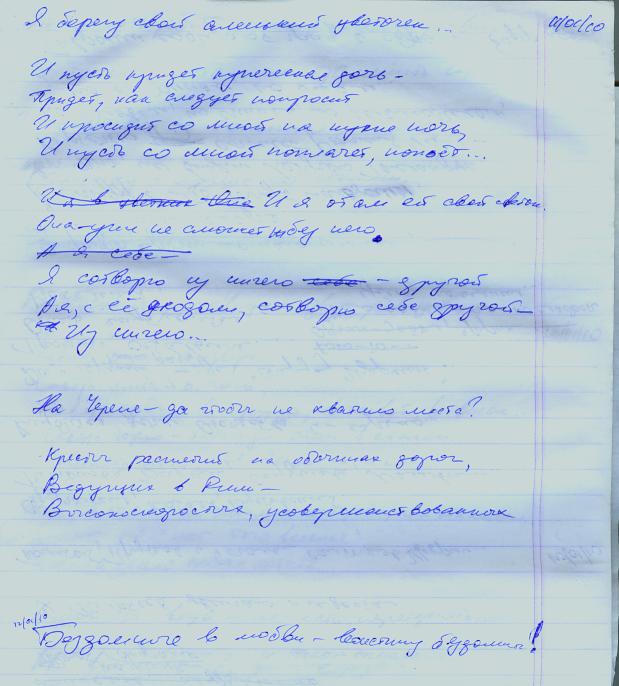 Я берегу свой аленький цветочек... 11/01/10
И пусть придет купеческая дочь –
Придет, как следует попросит
И просидит со мной на кухне ночь,
И пусть со мной поплачет, попоёт...
И я в цветник Она И я отдам ей свой цветок.
Она уж не сможет без него.
А я себе –
Я сотворю из ничего себе – другой
А я, с её уходом, сотворю себе другой –
Из ничего...
На Череме – да чтобы не хватило места?
Кресты распятий на обочинах дорог,
Ведущих в Рим –
Высокоскоростных, усовершенствованных
12/01/10
Бездомные в любви – воистину бездомны!